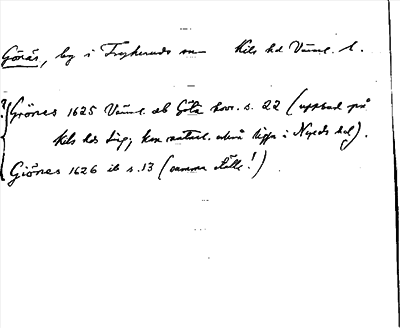 Görås, by i Frykeruds sn Kils hd Värml. l.
?{Grönes 1625 Värml. ab Göta hovr. s. 22 (uppbud på
Kils hds ting; kan naturl. också ligga i Nyeds hd).
Giönes 1626 ib s. 13 (samma ställe!)